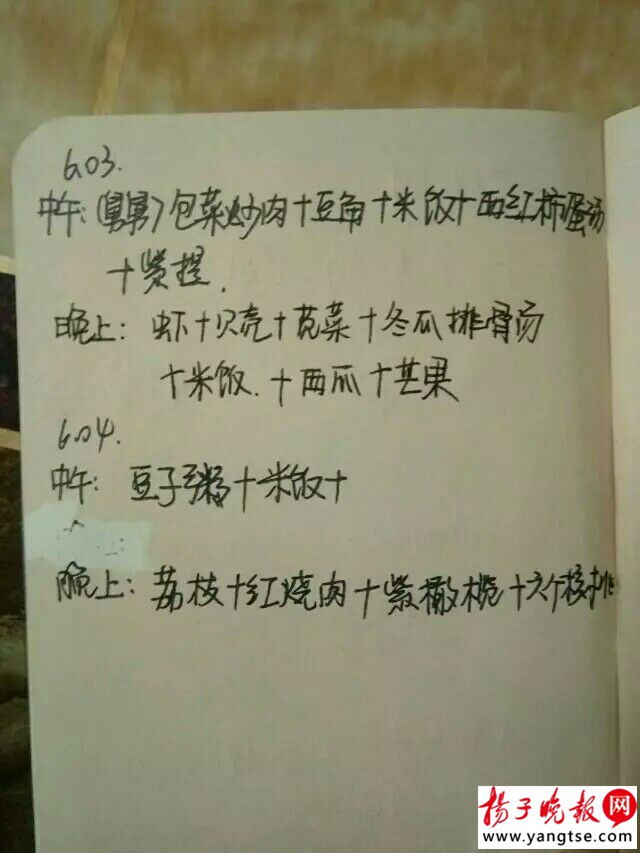 6.03.
中午：(舅舅)包菜炒肉+豆角+米饭+西红柿蛋汤
+紫提.
晚上：虾+贝壳+苋菜+冬瓜排骨汤
+米饭.+西瓜+芒果
6.04.
中午：豆子粥+米饭+
晚上：荔枝+红烧肉+紫橄榄+六个核桃
扬子晚报网
www.yangtse.com